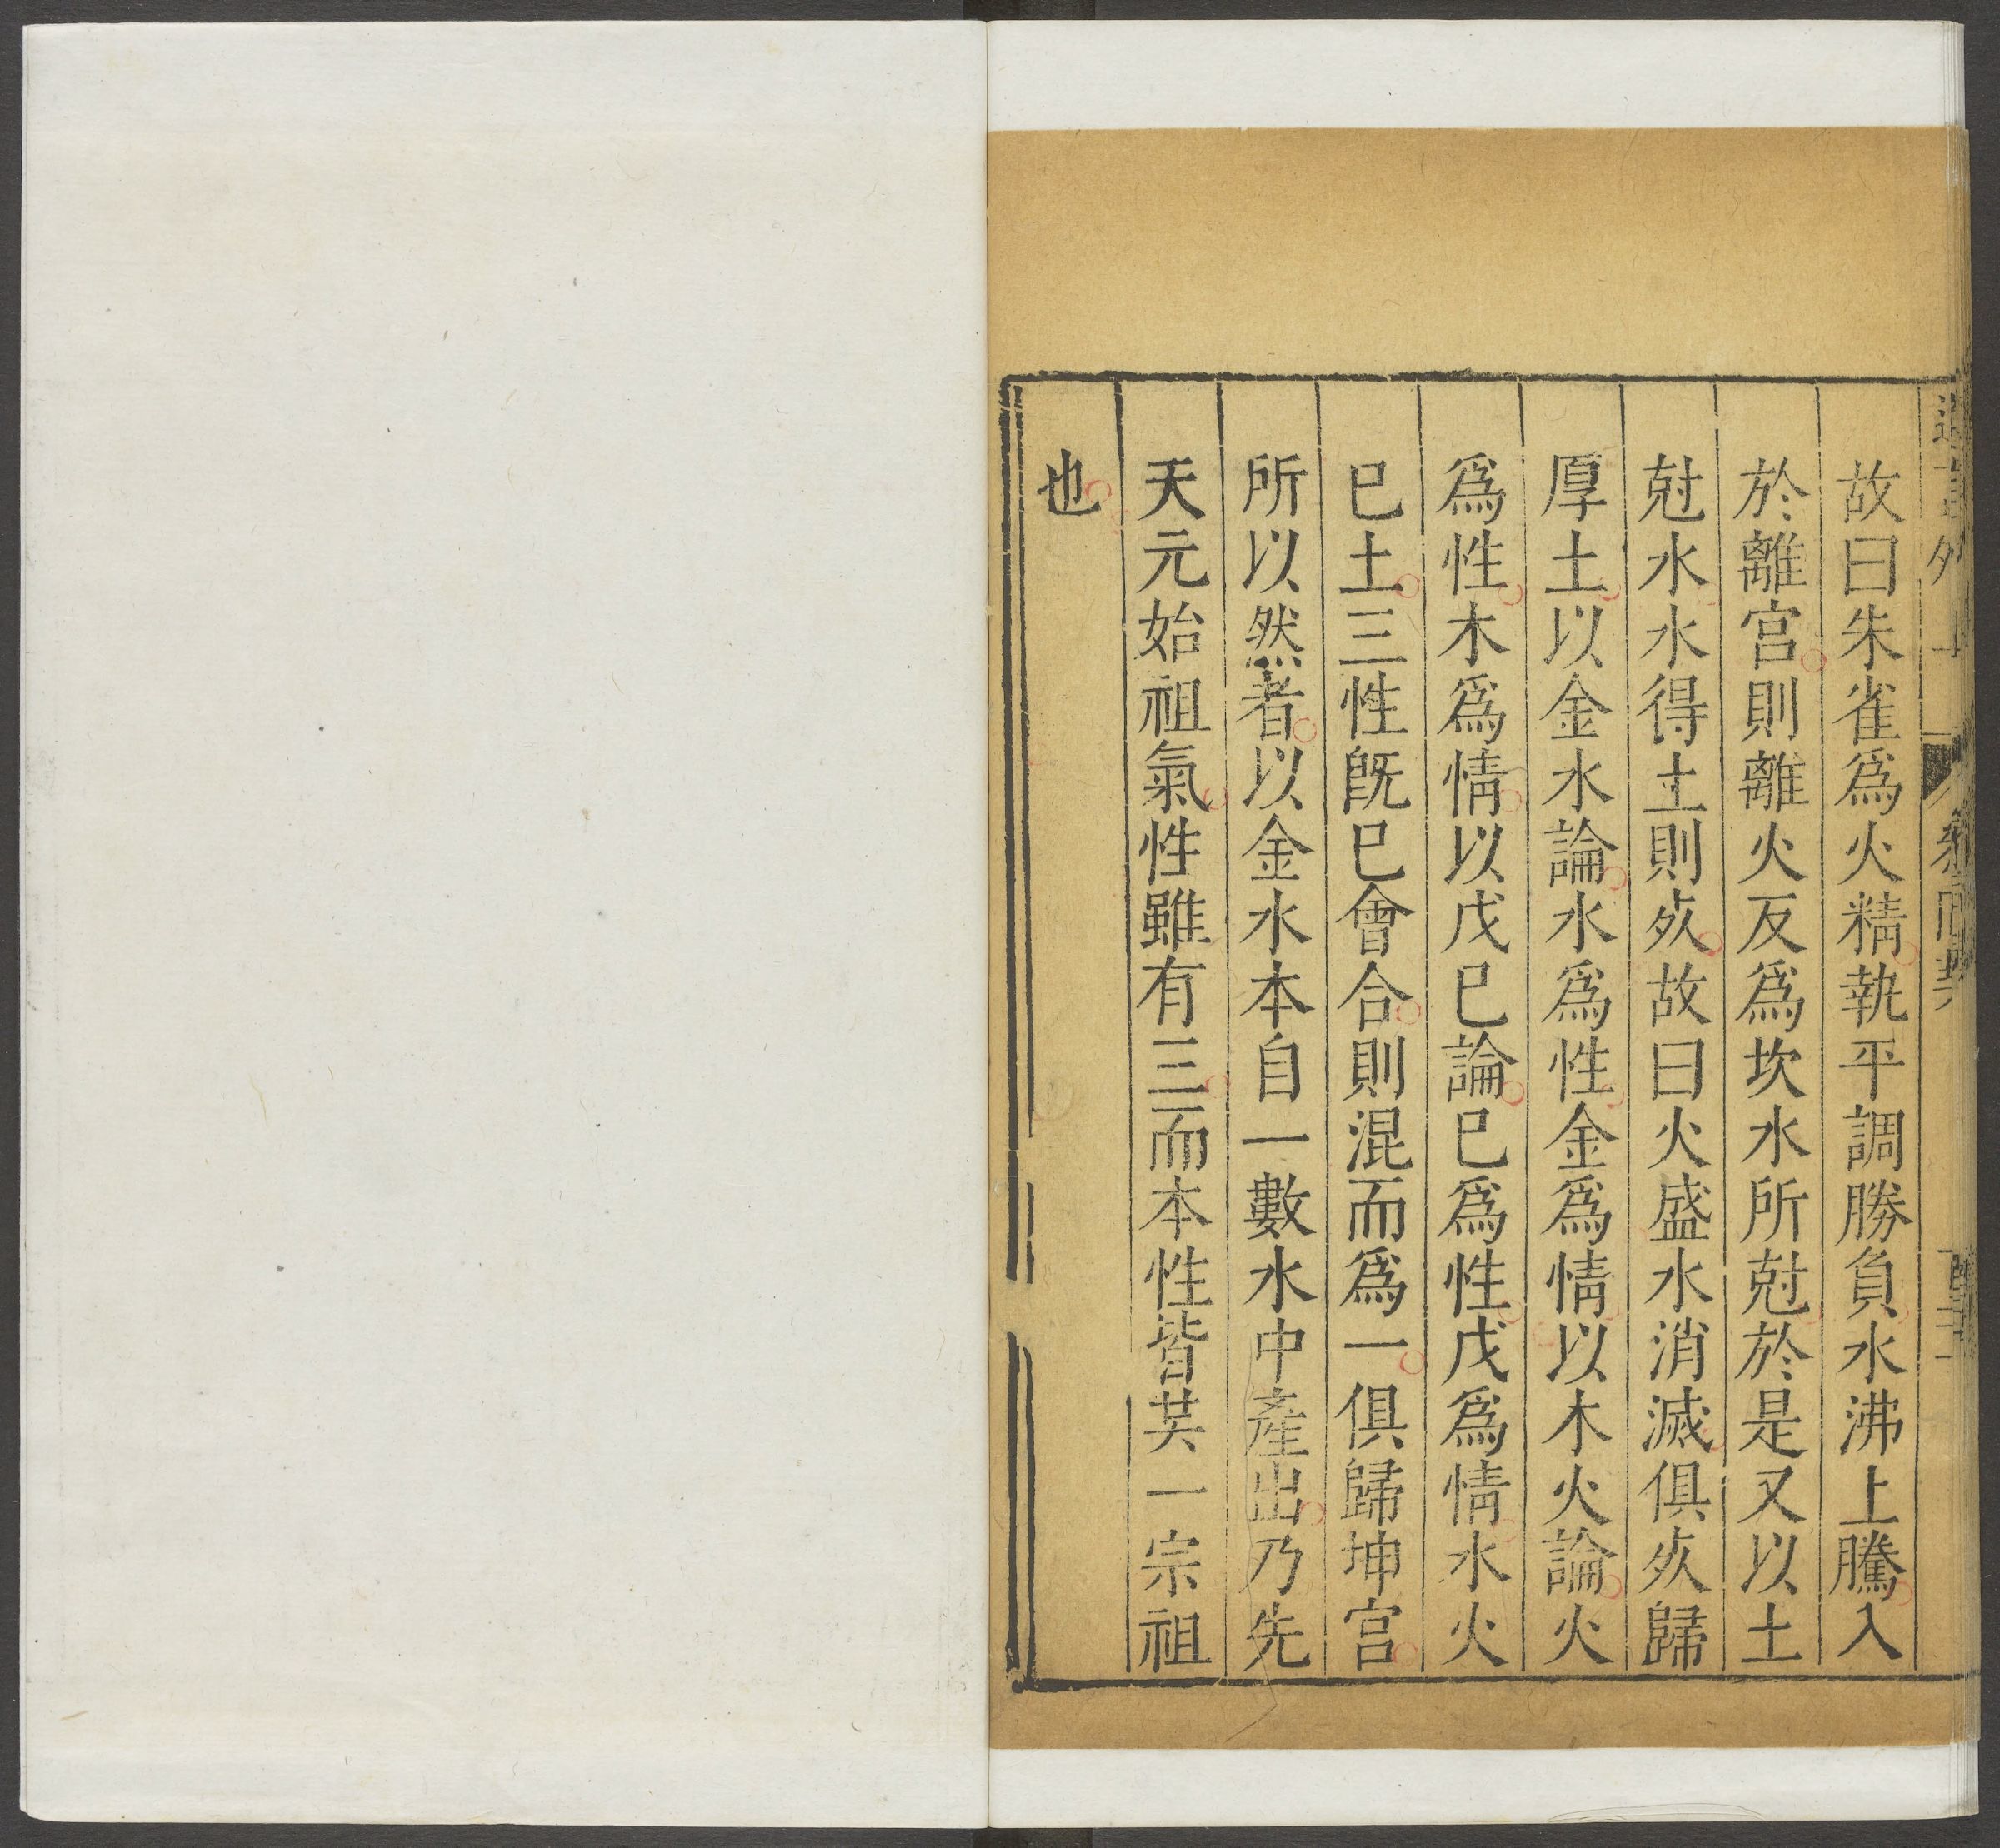 故曰朱雀爲火精執平調勝負水沸上騰入
於離宫則離火反爲坎水所尅於是又以土
尅水水得土則死故曰火盛水消滅俱死歸
厚土以金水論水爲性金爲情以木火論火
爲性木爲情以戊巳論巳爲性戊爲情水火
巳土三性旣巳會合則混而爲一俱歸坤宫
所以然者以金水本自一數水中產出乃先
天元始祖氣性雖有三而本性皆其一宗祖
也